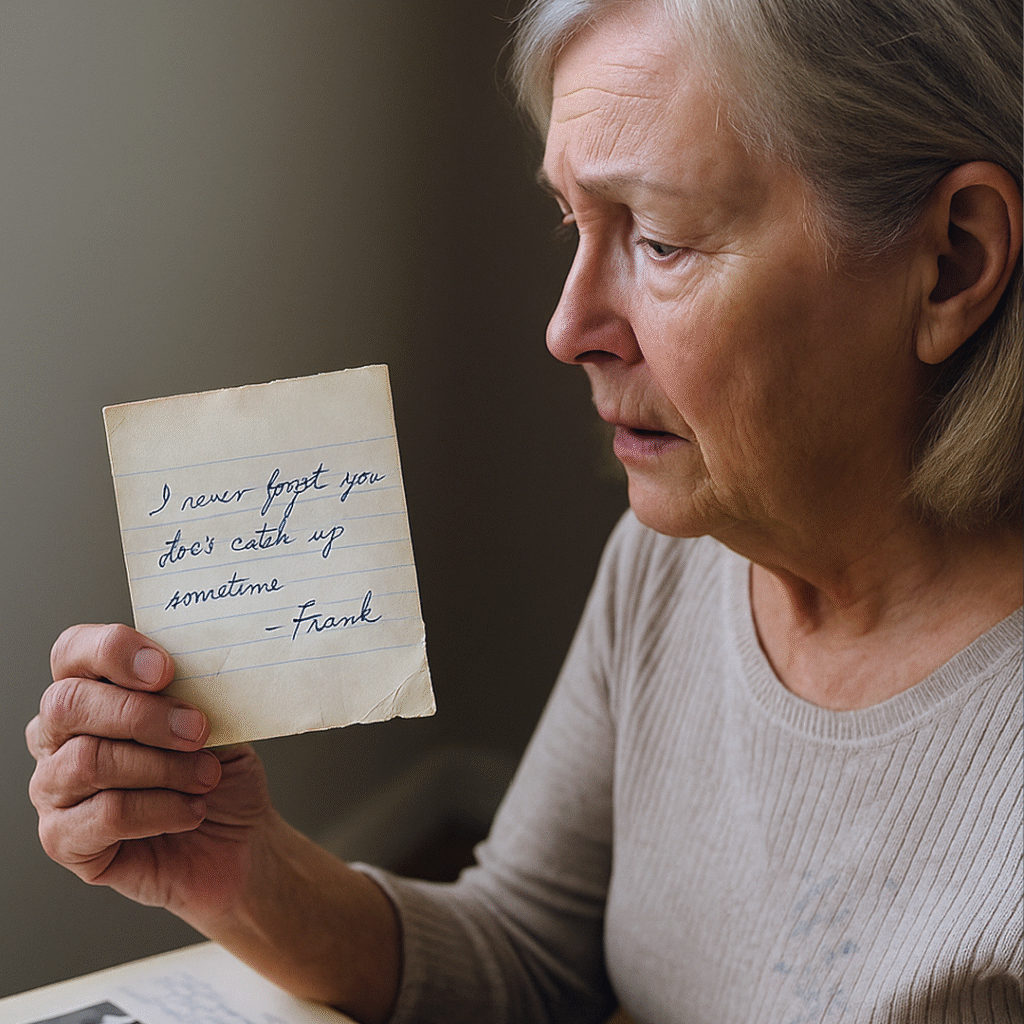 I never forgt you
doc's catch up
sometime
- Frank